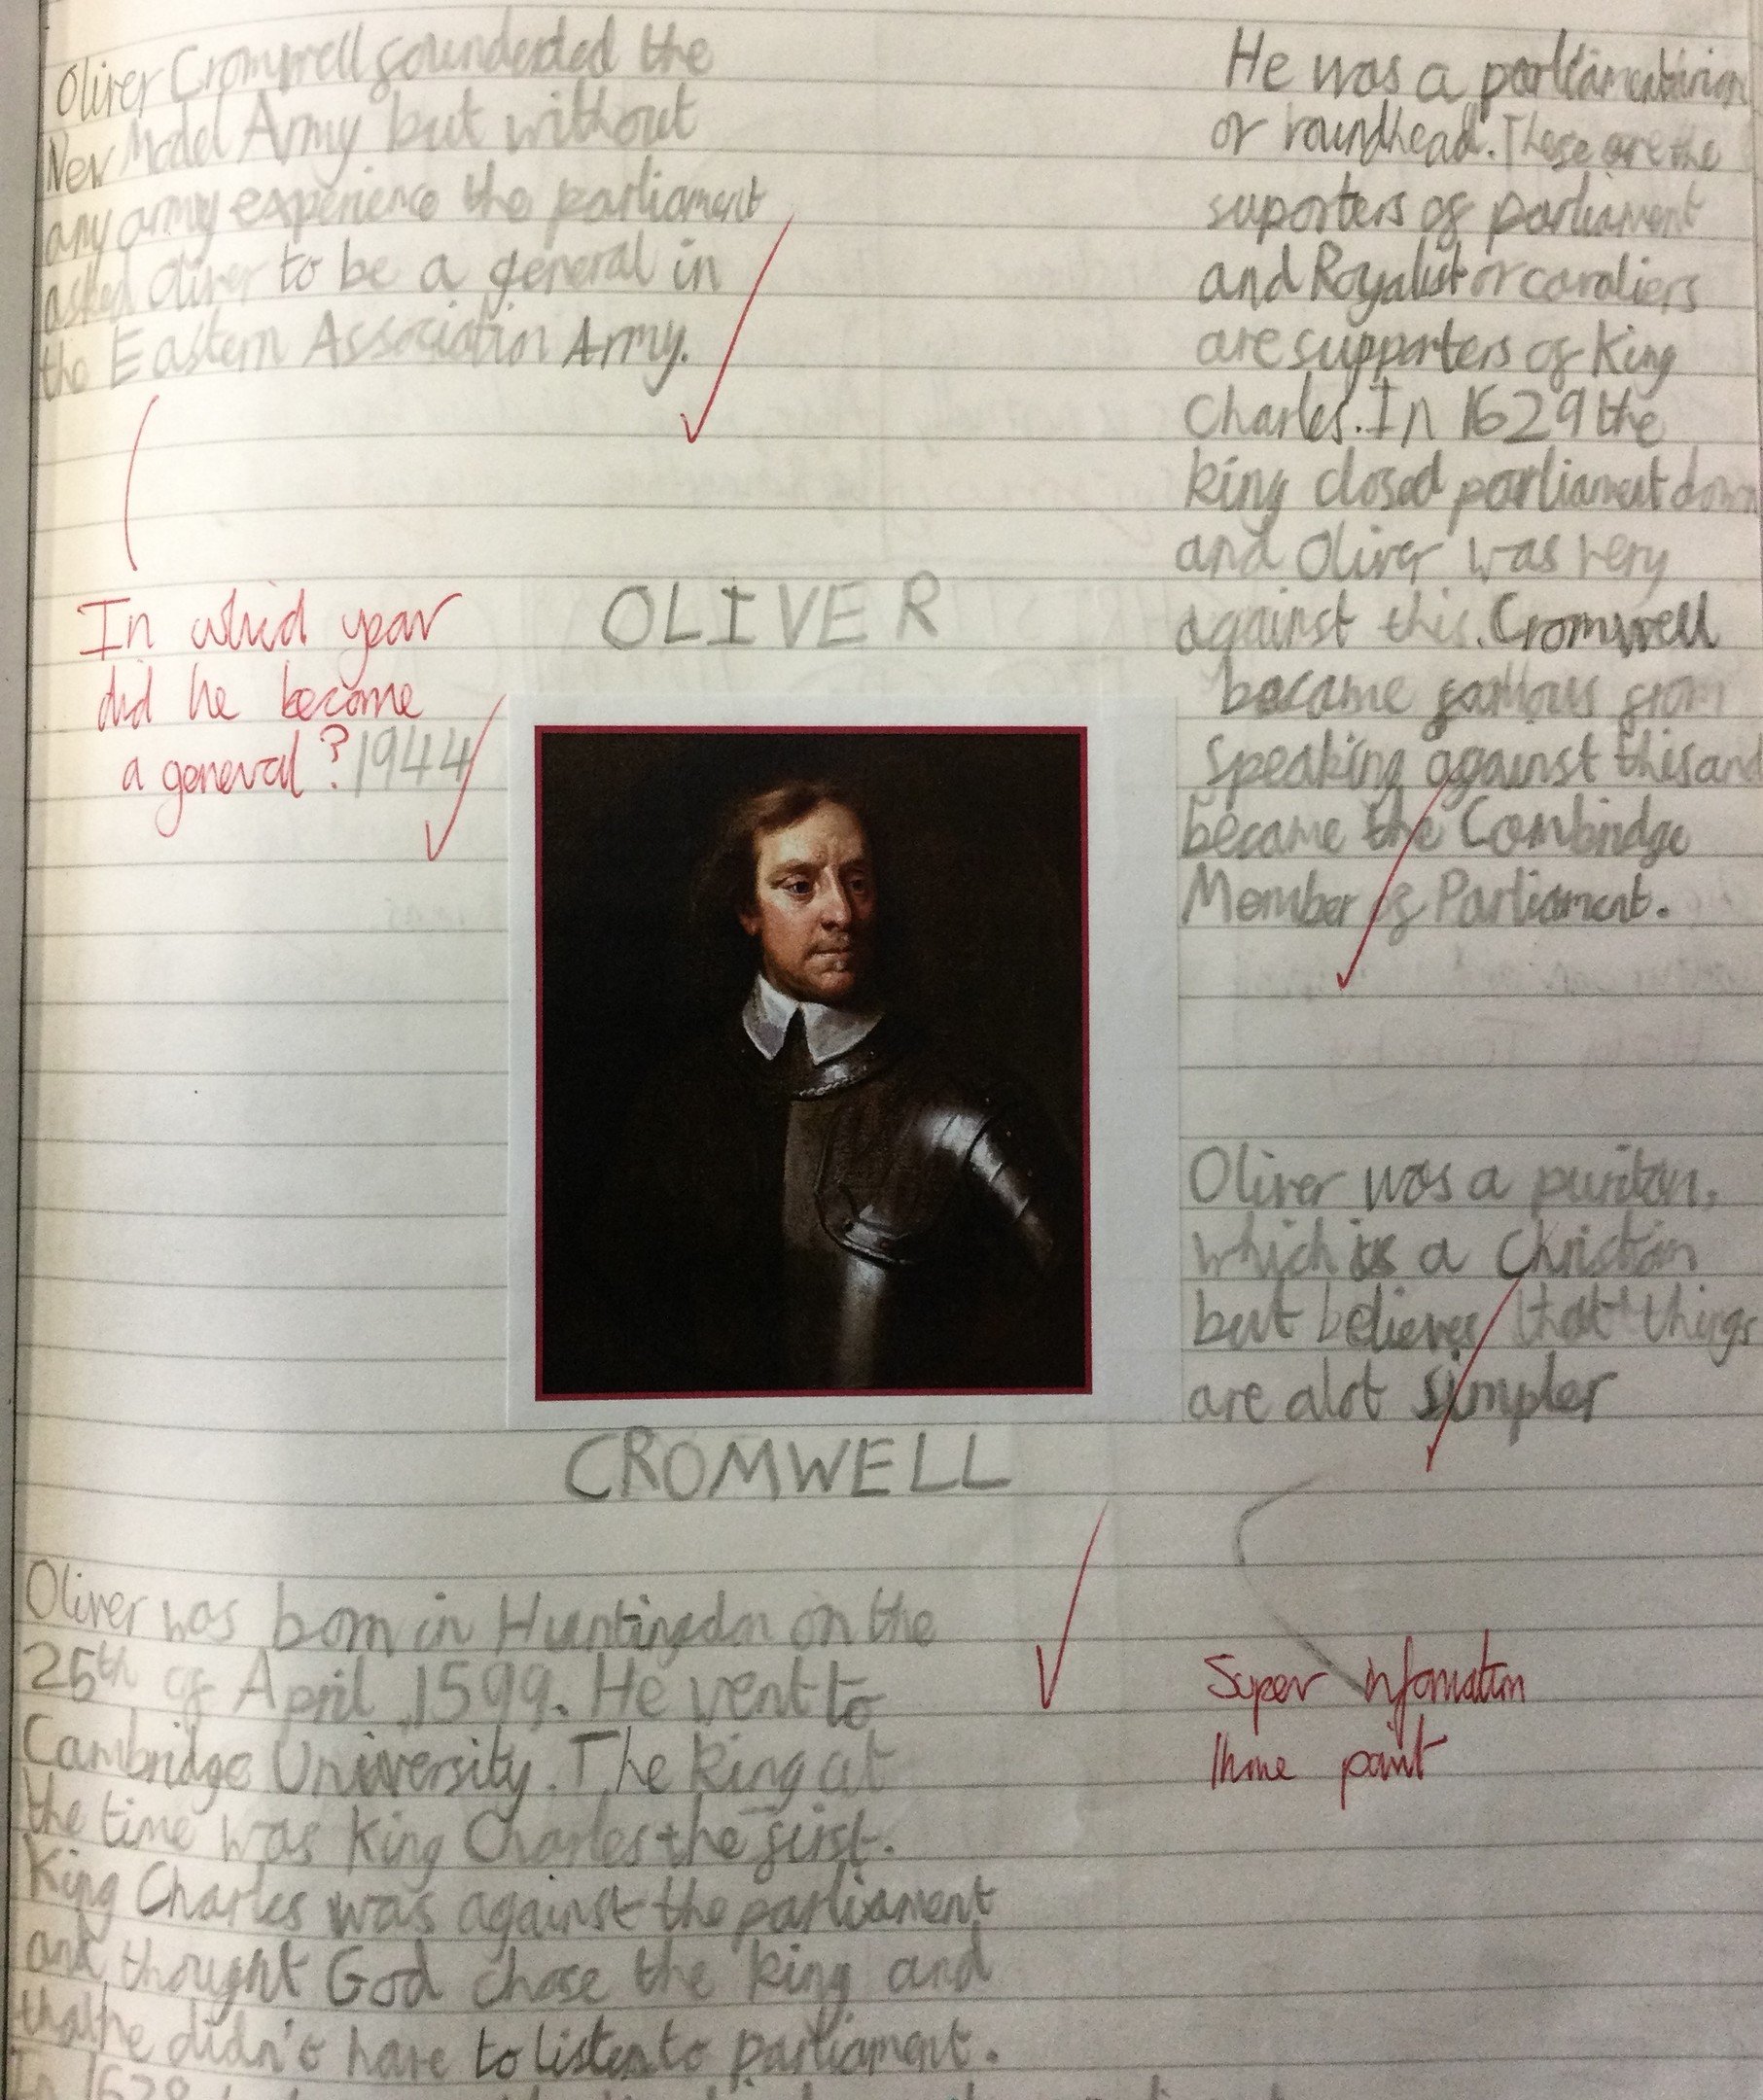 Oliver Cromwell founderded the
New Model Army but without
any army experience the parliament
asked Oliver to be a general in
the Eastern Association Army.
In which year
did he become
a general? 1944
He was a parliamentarian
or roundhead. These are the
suporters of parliament
and Royalist or cavaliers
are supporters of King
Charles. In 1629 the
king closed parliament down
and Oliver was very
against this. Cromwell
became famous from
speaking against this and
became the Cambridge
Member of Parliament.
OLIVER
CROMWELL
Oliver was a puritan,
which is a Christian
but believes that things
are alot simpler
Super information
point
Oliver was born in Huntingdon on the
25th of April 1599. He went to
Cambridge University. The king at
the time was King Charles the first.
King Charles was against the parliament
and thought God chose the king and
that he didn't have to listen to parliament.
In 1628